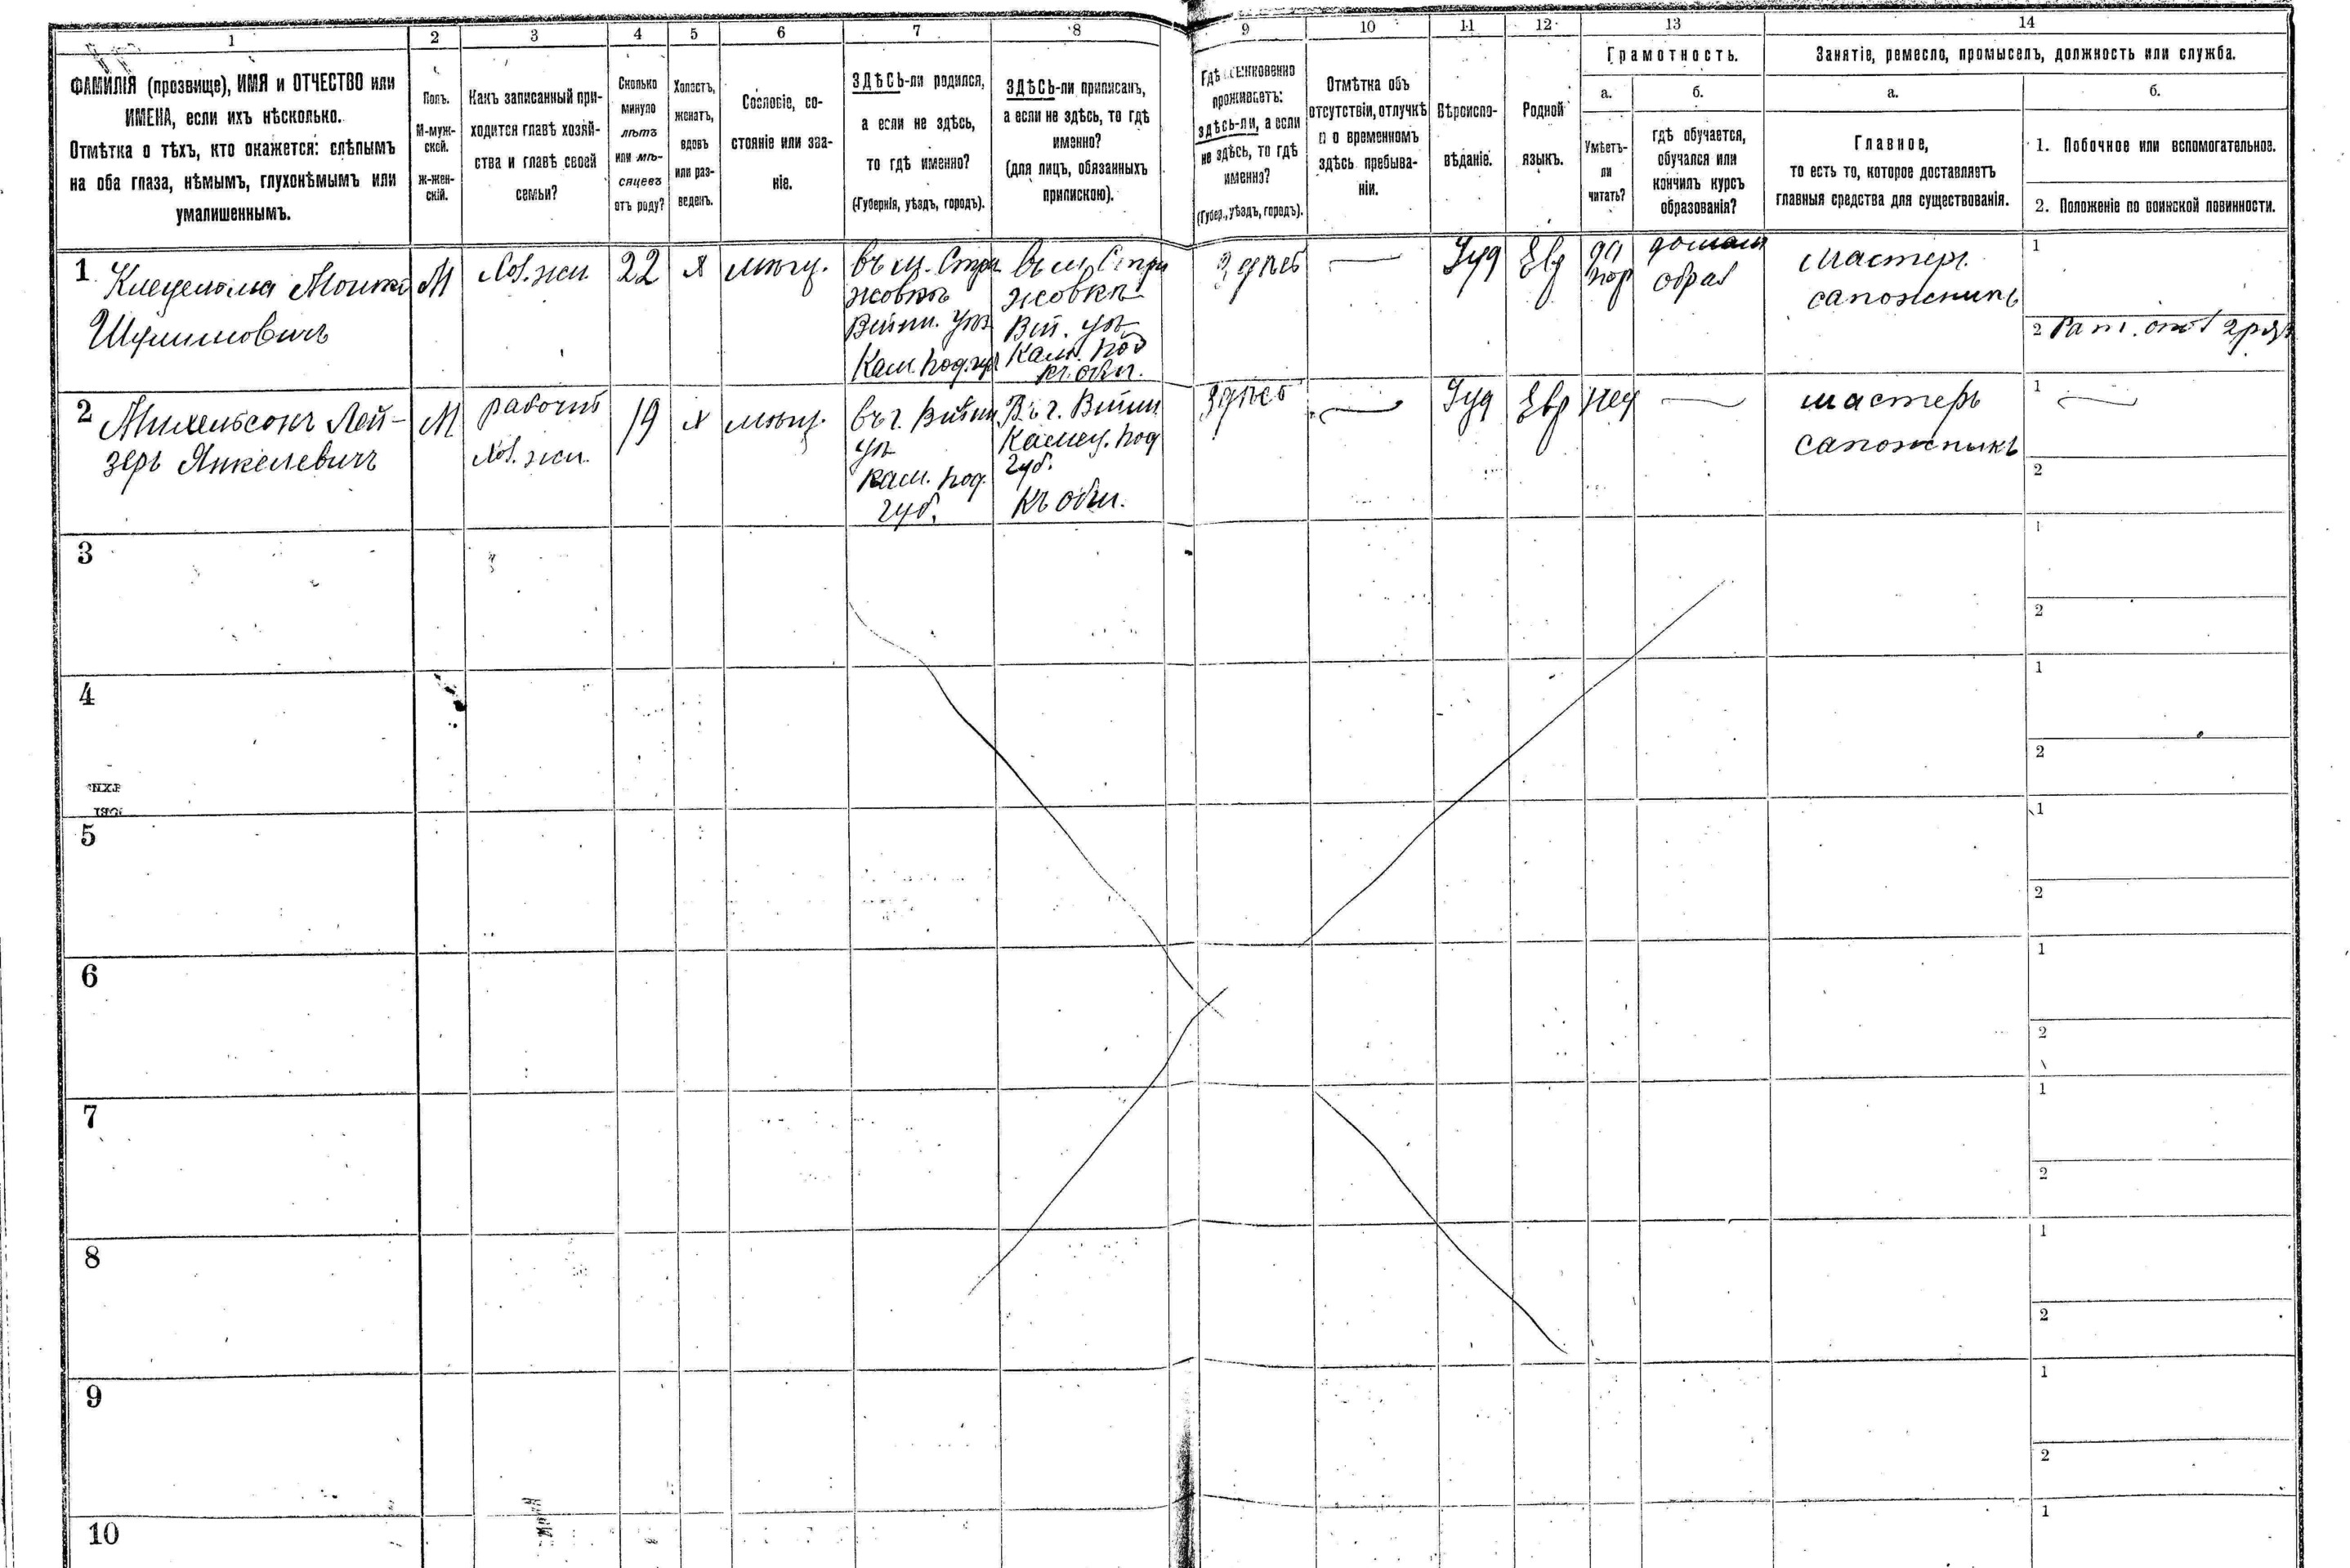 1 2 3 4 5 6 7 8 9 10 11 12 13 14
ФАМИЛІЯ (прозвище), ИМЯ и ОТЧЕСТВО или
ИМЕНА, если ихъ нѣсколько.
Отмѣтка о тѣхъ, кто окажется: слѣпымъ
на оба глаза, нѣмымъ, глухонѣмымъ или
умалишеннымъ.
Полъ.
М-муж-
ской.
Ж-жен-
скій.
Какъ записанный при-
ходится главѣ хозяй-
ства и главѣ своей
семьи?
Сколько
минуло
лѣтъ
или мѣ-
сяцевъ
отъ роду?
Холостъ,
женатъ,
вдовъ
или раз-
веденъ.
Сословіе, со-
стояніе или зва-
ніе.
ЗДѢСЬ-ли родился,
а если не здѣсь,
то гдѣ именно?
(Губернія, уѣздъ, городъ).
ЗДѢСЬ-ли приписанъ,
а если не здѣсь, то гдѣ
именно?
(для лицъ, обязанныхъ
припискою).
Гдѣ
проживаетъ:
здѣсь-ли, а если
не здѣсь, то гдѣ
именно?
(Губер., уѣздъ, городъ).
Отмѣтка объ
отсутствіи, отлучкѣ
и о временномъ
здѣсь пребыва-
ніи.
Вѣроиспо-
вѣданіе.
Родной
языкъ.
Грамотность.
а.
Умѣетъ-
ли
читать?
б.
гдѣ обучается,
обучался или
кончилъ курсъ
образованія?
Занятіе, ремесло, промыселъ, должность или служба.
а.
Главное,
то есть то, которое доставляетъ
главныя средства для существованія.
б.
1. Побочное или вспомогательное.
2. Положеніе по воинской повинности.
1
Шулимовичъ
М
22
х
мѣщ.
въ м. Стри
жовкѣ
Винн. уѣз
Кам. под. губ
въ м. Стри
жовкѣ
Вин. уѣ
Кам. под
къ общ.
Здѣсь
—
Іуд
Евр
да
домаш
образ
мастер.
сапожникъ
1
2
2 Михельсонъ Лей-
зеръ Янкелевичъ
М
рабочій
19
х
мѣщ.
въ г. Винн
уѣ
Кам. под.
губ.
Въ г. Винн
Камен. под
губ.
Къ общ.
Здѣсь
—
Іуд
Евр
—
мастеръ
сапожникъ
1 —
2
3
1
2
4
1
2
5
1
2
6
1
2
7
1
2
8
1
2
9
1
2
10
1